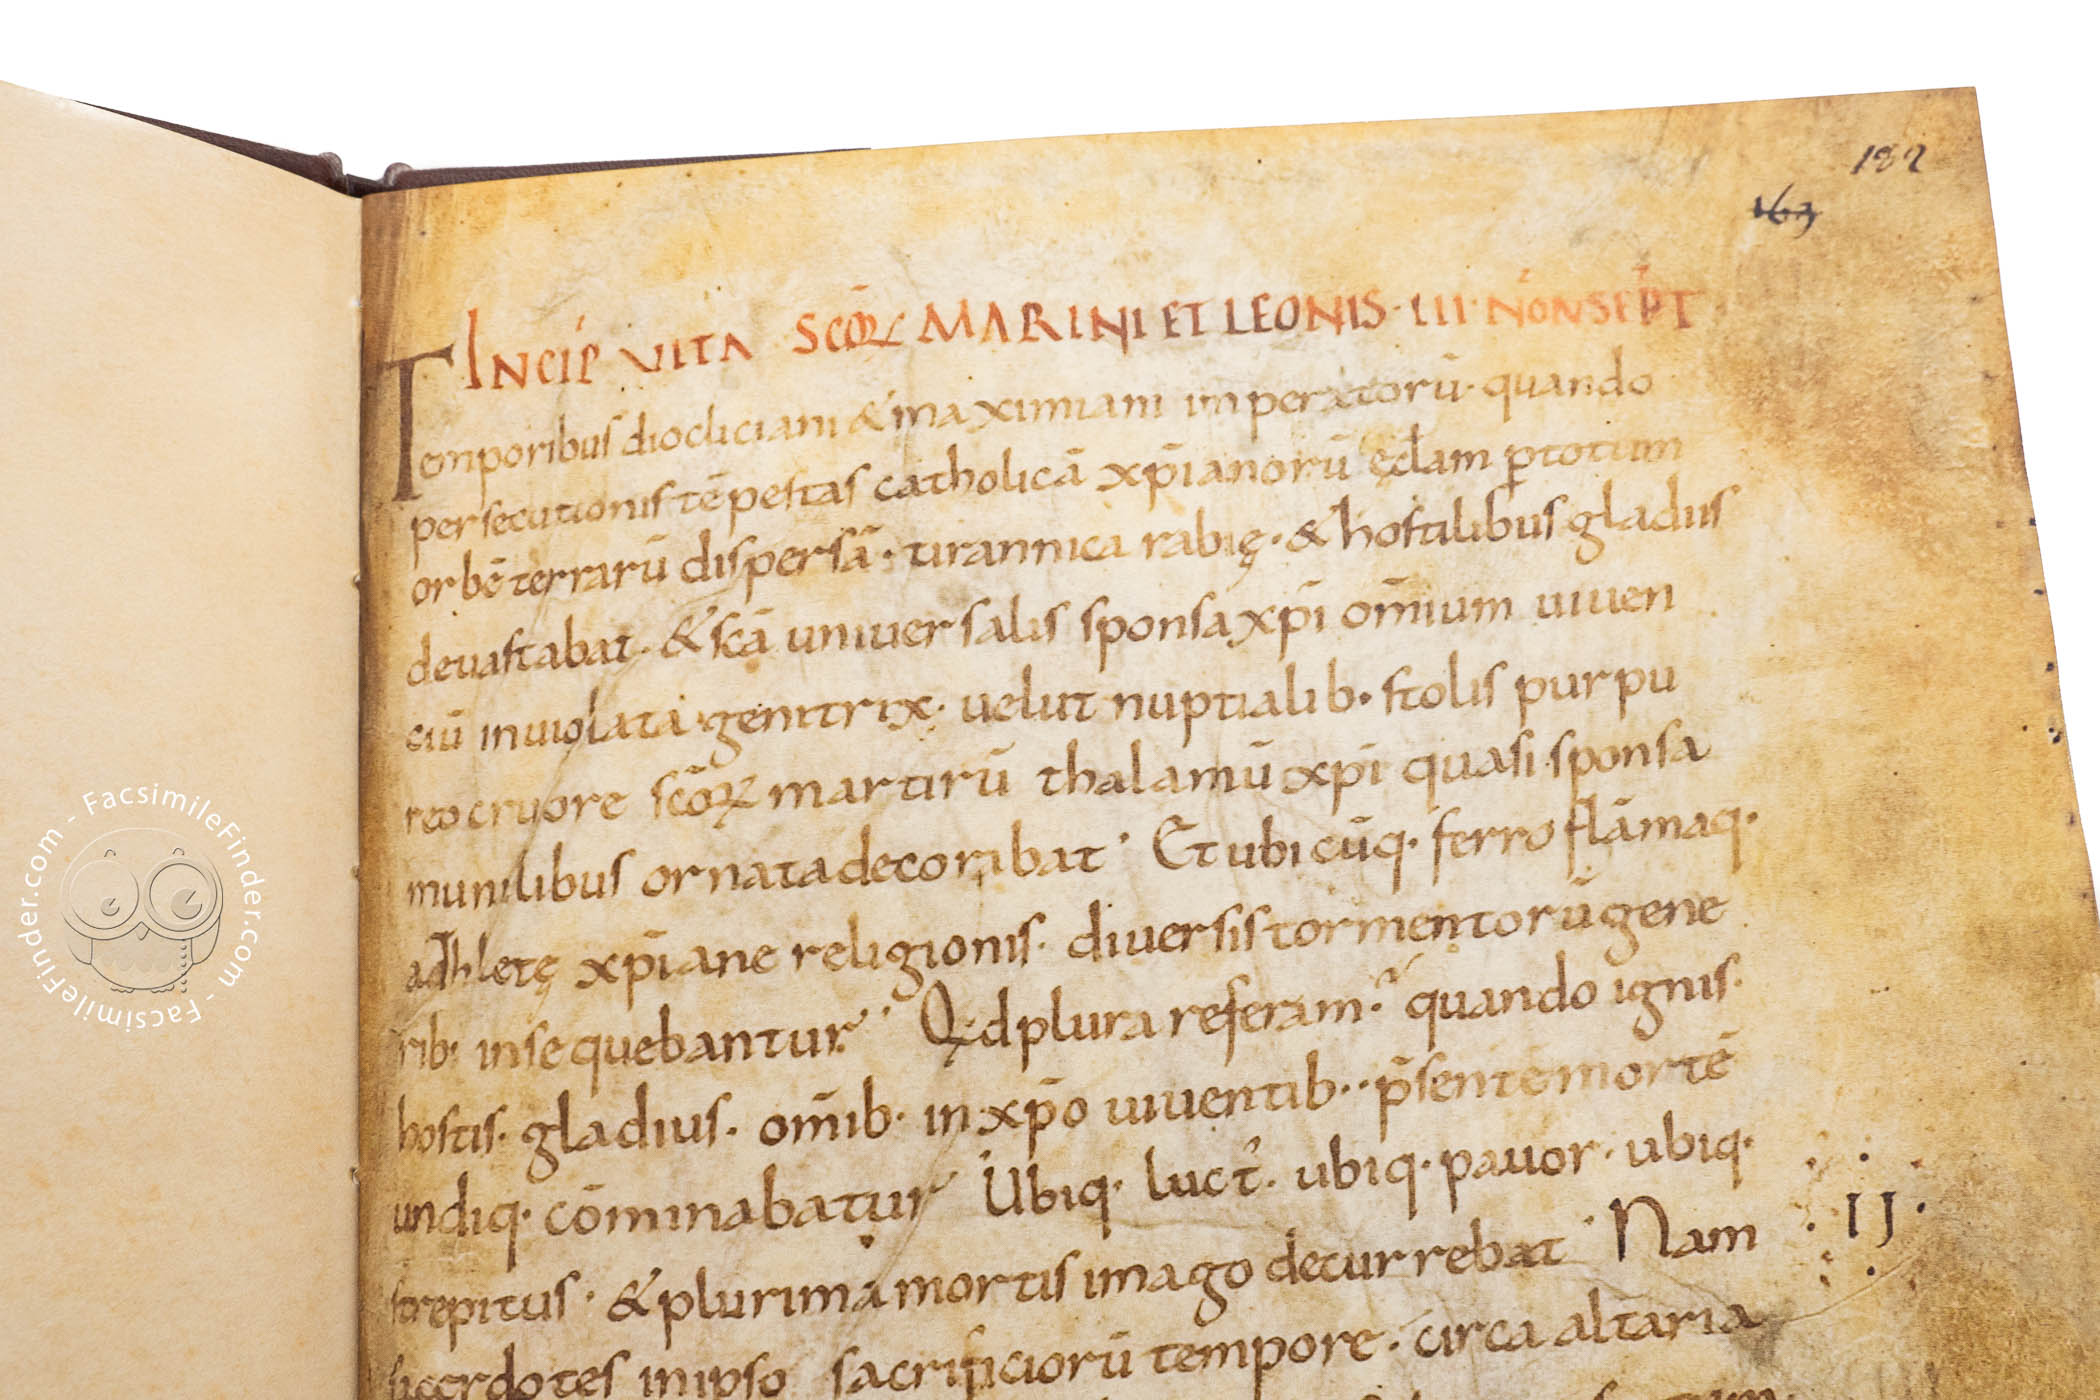 182
163
INCIP VITA SCŌRꝜ MARINI ET LEONIS · III · NON SEPT
Temporibus diocliciani & maximiani imperatorū · quando
persecutionis tēpestas catholicā xp̄ianorū ędam ꝑtotum
orbē terrarū dispersā · tirannica rabię · & hostilibus gladiis
devastabat · & sc̄ā universalis sponsa xp̄i om̄ium viven
ciū inviolata genitrix · velut nuptialib · stolis purpu
reo cruore sc̄oꝝ martirū thalamū xp̄i quasi sponsa
munilibus ornata decoribat · Et ubicūq · ferro flāmaq ·
adthletę xp̄iane religionis · diversis tormentorū gene
rib · insequebantur · Qd plura referam · quando ignis ·
hostis · gladius · om̄ib · in xp̄o viventib · p̄sentē mortē
undiq · cōminabatur Ubiq · luct᾽ · ubiq · pavor · ubiq ·
strepitus · & plurima mortis imago decurrebat · Nam
· II ·
sacerdotes in ipso sacrificiorū tempore · circa altaria
FacsimileFinder.com - FacsimileFinder.com -